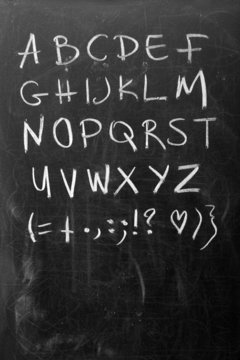 ABCDEF
GHIJKLM
NOPQRST
UVWXYZ
(=+.,:;!?♡/)}